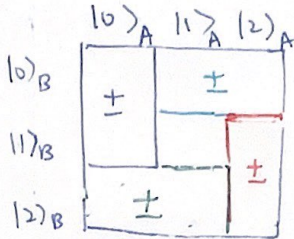 |0⟩_A |1⟩_A |2⟩_A
|0⟩_B ±
±
|1⟩_B ±
|2⟩_B ±